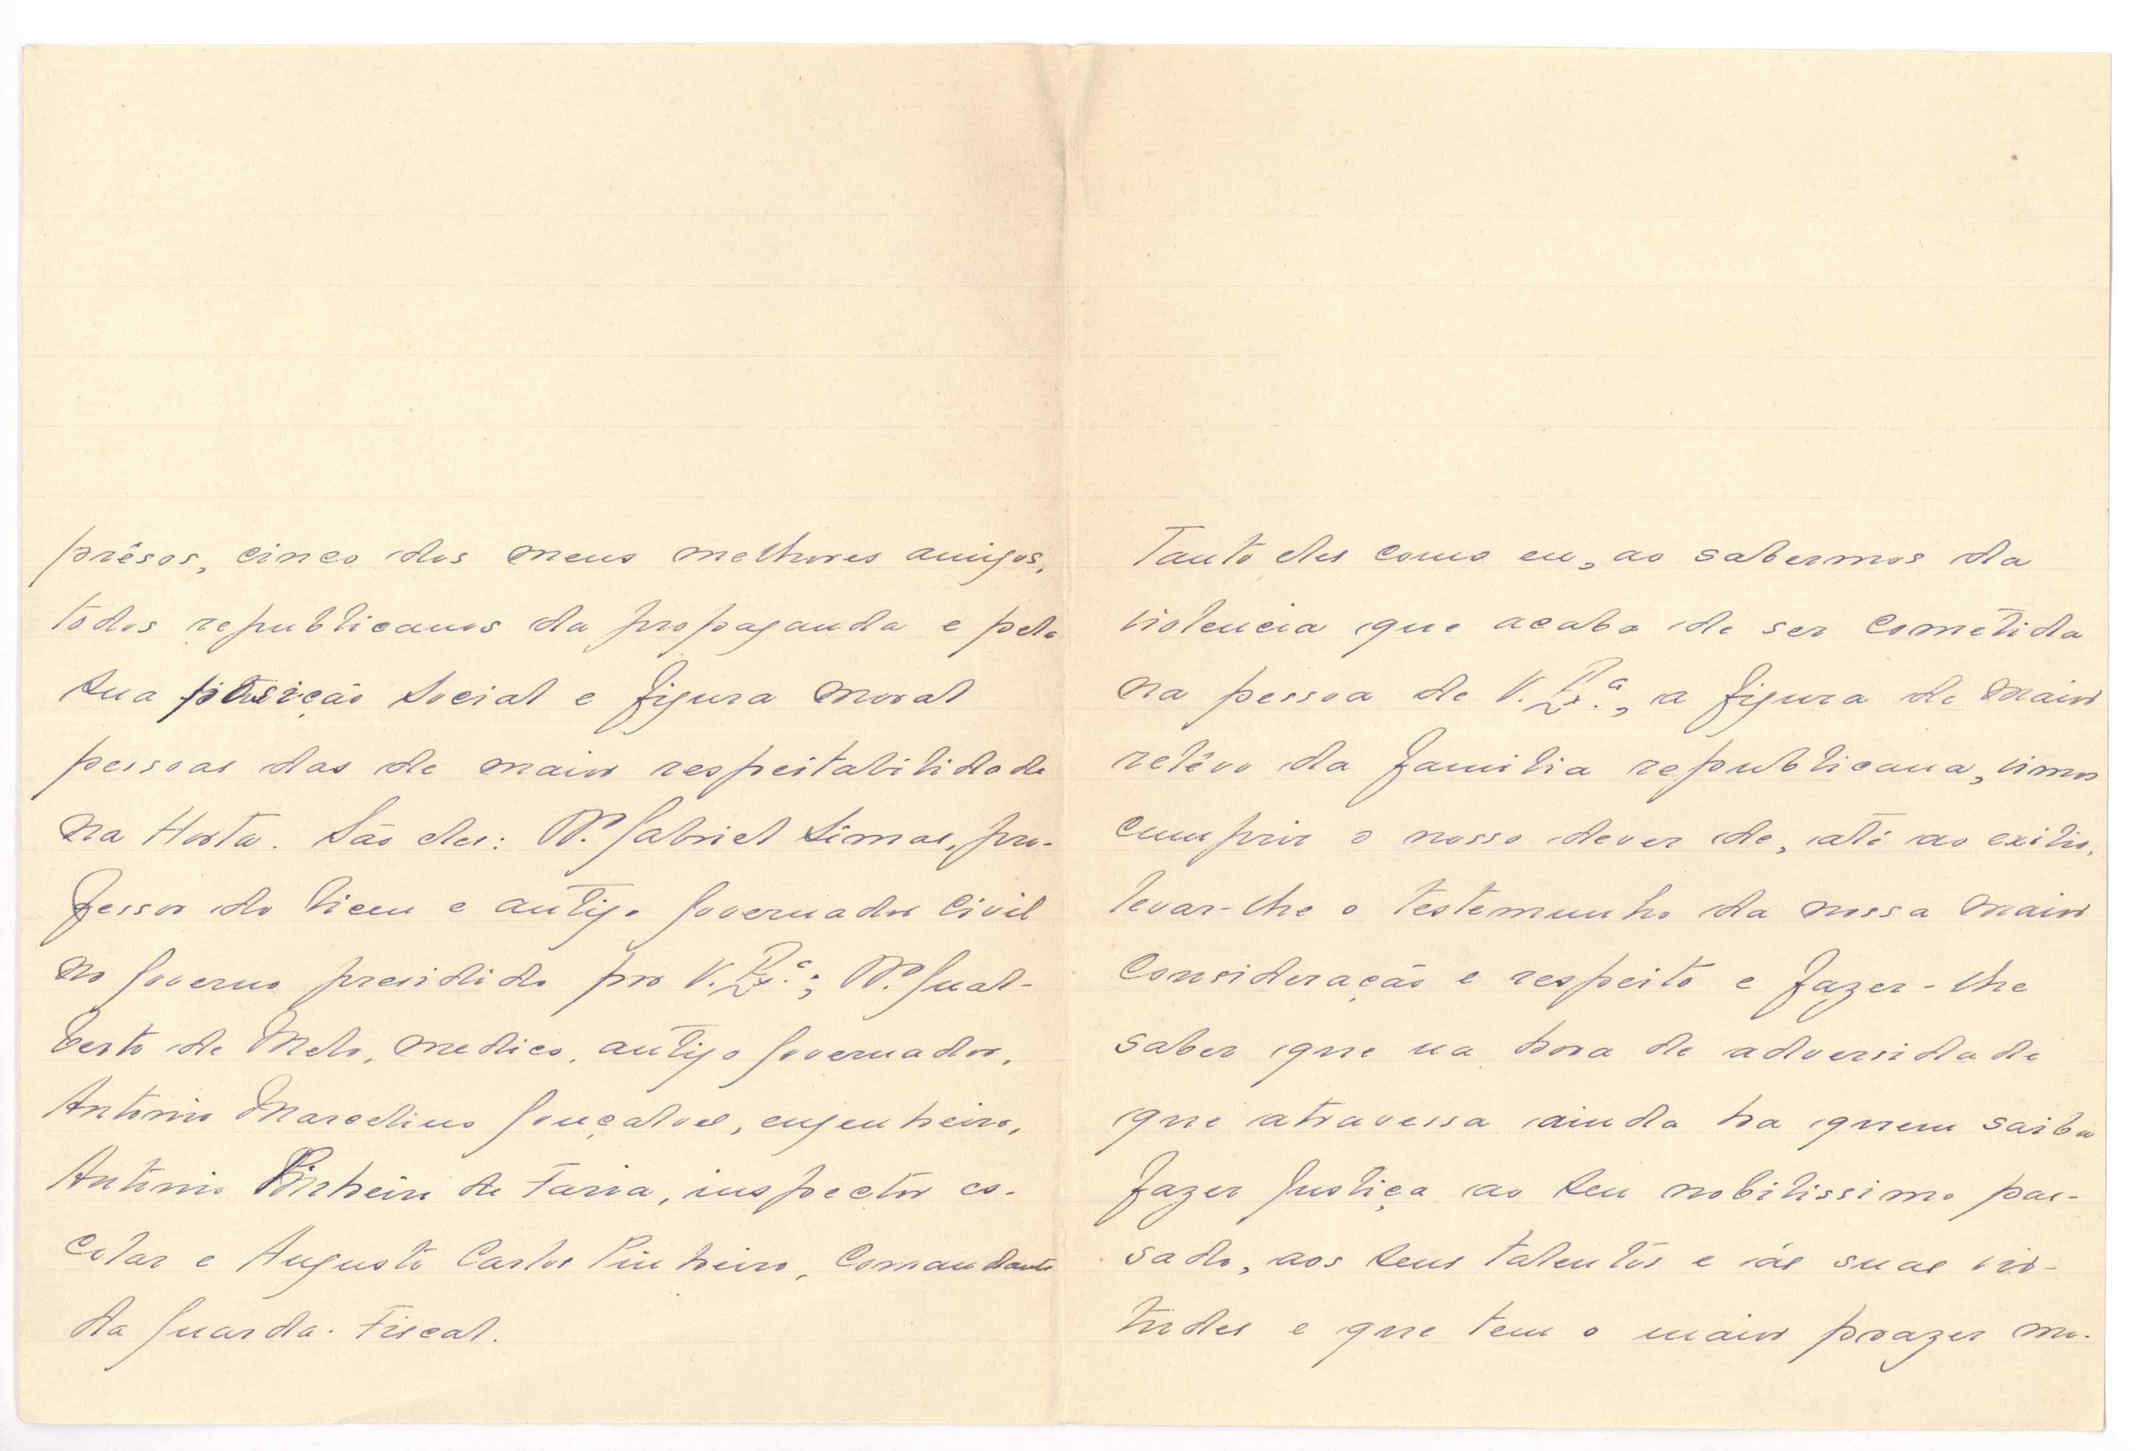 prêsos, cinco dos meus melhores amigos,
todos republicanos da propaganda e pela
sua posição social e figura moral
pessoas das de maior respeitabilidade
na Horta. São eles: Dr. Gabriel Simas, pro-
fessor do liceu e antigo Governador Civil
no Governo presidido por V. Ex.ª; Dr. Gual-
berto de Melo, medico, antigo Governador,
Antonio Marcelino Gonçalves, engenheiro,
Antonio Pinheiro de Faria, inspector es-
colar e Augusto Carlos Pinheiro, Comandante
da Guarda-Fiscal.
Tanto eles como eu, ao sabermos da
violencia que acaba de ser cometida
na pessoa de V. Ex.ª, a figura de maior
relêvo da familia republicana, vimos
cumprir o nosso dever de, até ao exilio,
levar-lhe o testemunho da nossa maior
consideração e respeito e fazer-lhe
saber que na hora de adversidade
que atravessa ainda ha quem saiba
fazer Justiça ao seu nobilissimo pas-
sado, aos seus talentos e ás suas vir-
tudes e que tem o maior prazer mo-